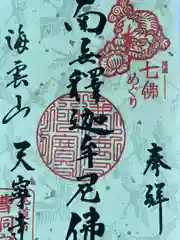 七佛
めぐり
奉拜
南無釋迦牟尼佛
海雲山
天寧寺